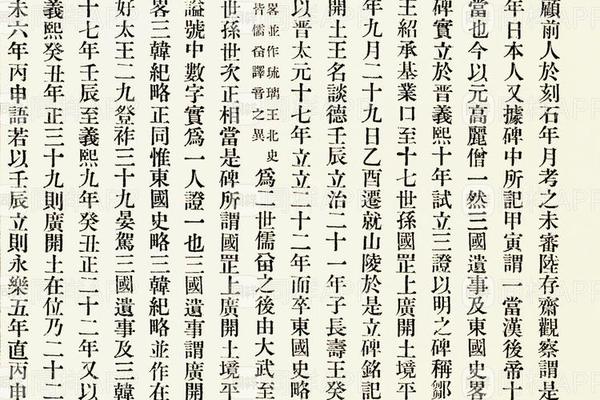 顧前人於刻石年月考之未審陸存齋觀察謂是
年日本人又據碑中所記甲寅謂一當漢後帝十
當也今以元高麗僧一然三國遺事及東國史畧
碑實立於晉義熙十年試立三證以明之碑稱鄒
王紹承基業口至十七世孫國罡上廣開土境平
年九月二十九日乙酉遷就山陵於是立碑銘記
開土王名談德壬辰立治二十一年子長壽王癸
以晉太元十七年立立二十二年而卒東國史略
畧並作琉璃王北史
皆儒㽞譯音之異
爲一世儒㽞之後由大武至
世孫世次正相當是碑所謂國罡上廣開土境平
諡號中數字實爲一人證一也三國遺事謂廣開
畧三韓紀略正同惟東國史略三韓紀略並作在
好太王二九登祚三十九晏駕三國遺事及三韓
十七年壬辰至義熙九年癸丑正二十二年又以
義熙癸丑年正三十九則廣開土在位乃二十二
未六年丙申語若以壬辰立則永樂五年直丙申